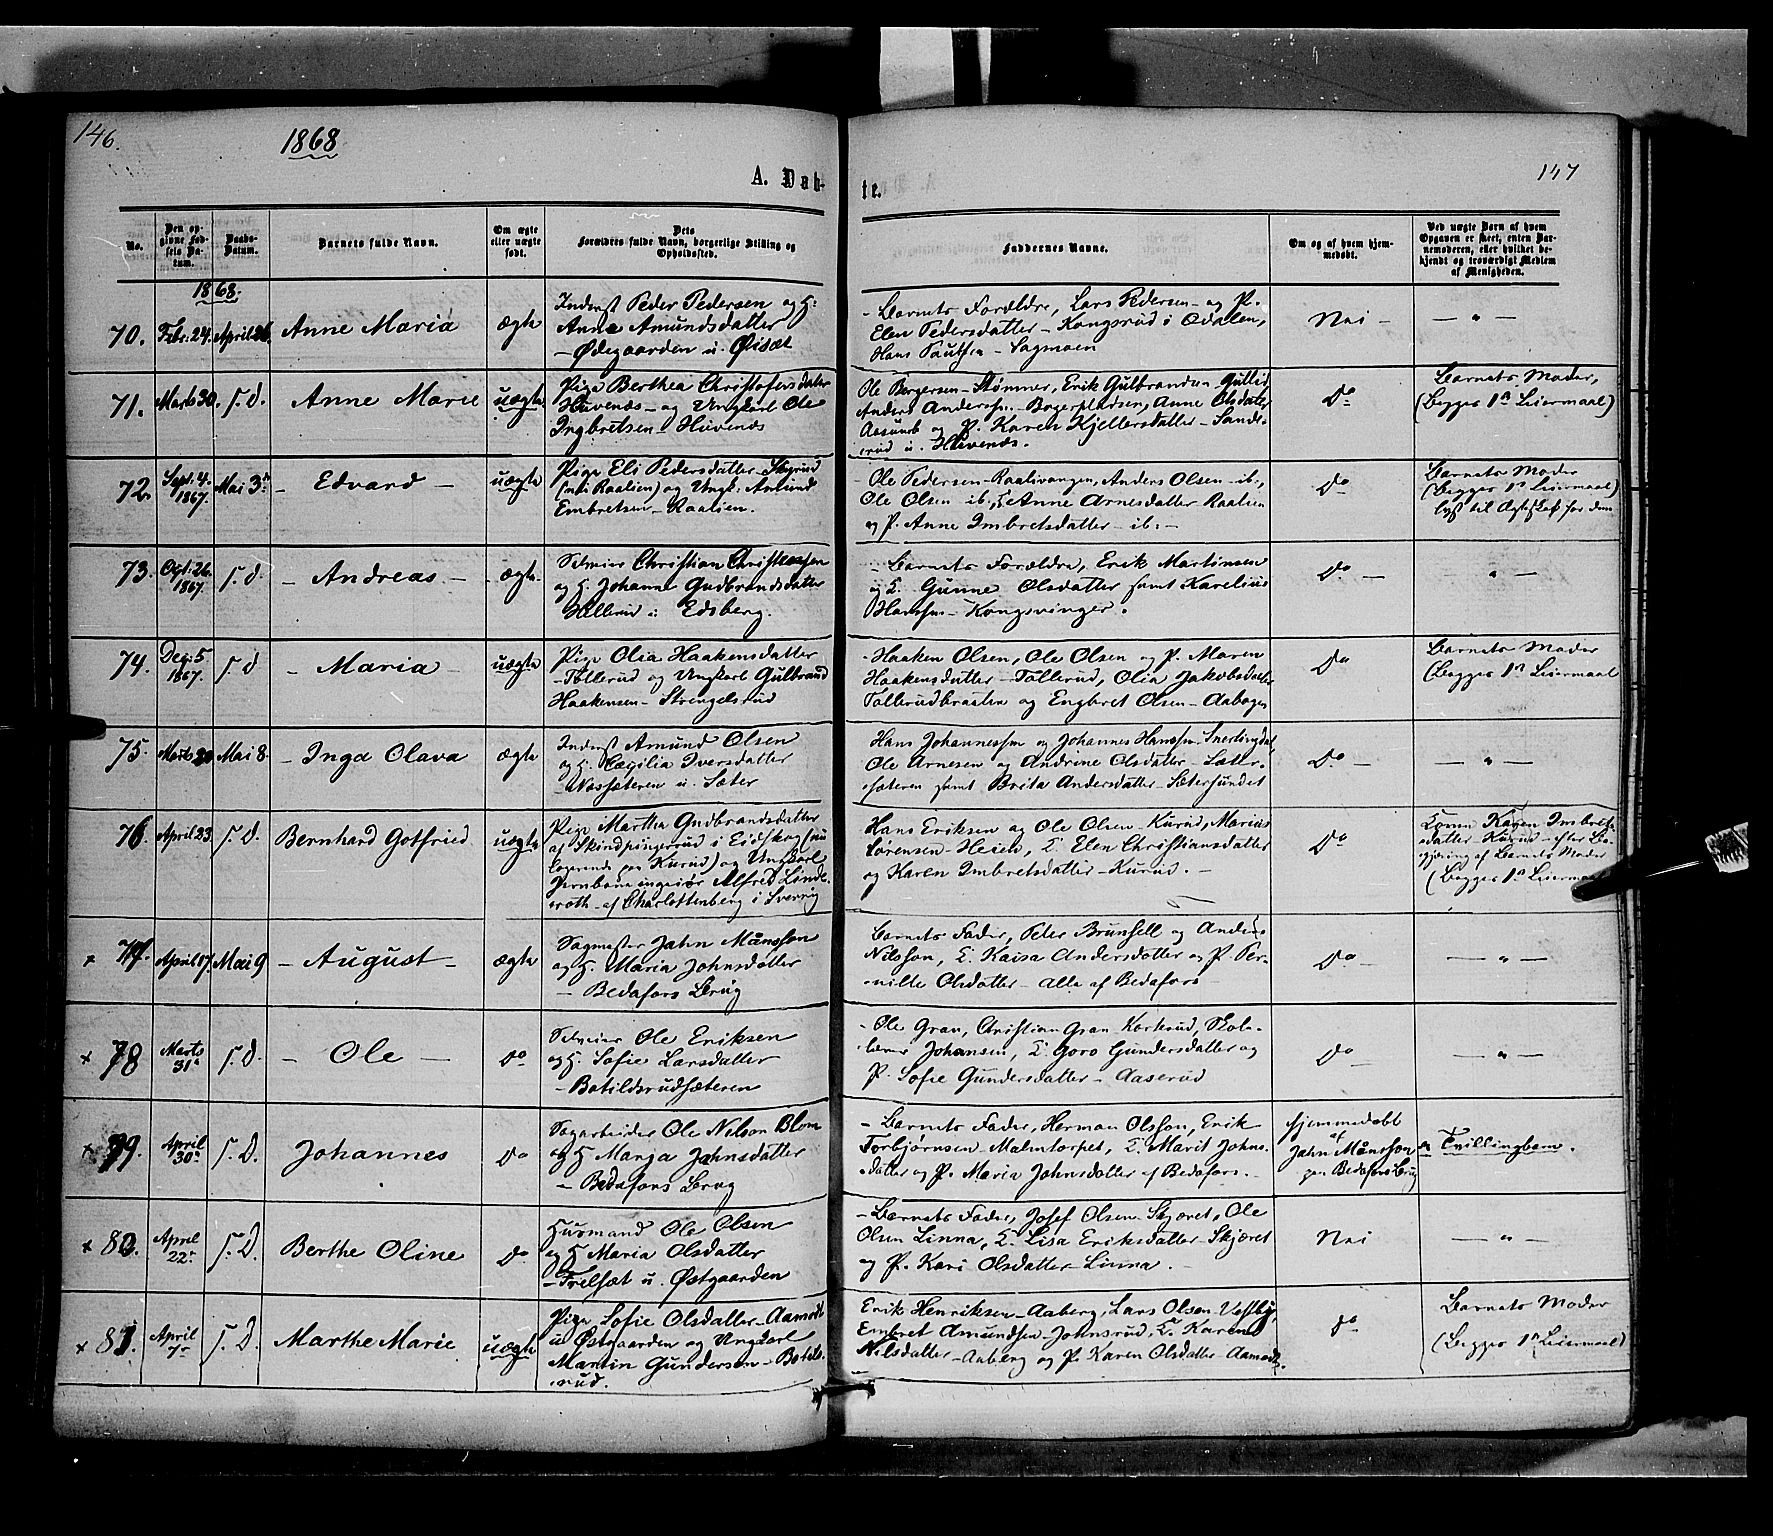 146.
1868
A. Dab-
No.
Den opgivne Fødsels Datum.
Daabs-Datum.
Barnets fulde Navn.
Om ægte eller uægte født.
Dets Forældres fulde Navn, borgerlige Stilling og Opholdssted.
1868.
70. Febr. 24. April 26. Anne Maria ægte
Inderst Peder Pedersen og H:
Anne Amundsdatter
- Ødegaarden u. Øisæt
71. Marts 30. s. d. Anne Marie uægte
Pige Berthea Christofersdatter
Huvenæs - og Ungkarl Ole
Ingbretsen - Huvenæs
72. Sept. 4. 1867. Mai 3. - Edvard - uægte
Pige Eli Pedersdatter
og Ungk: Amund
Embretsen - Raalien.
73. Oct. 26. 1867. s. d. - Andreas - ægte
Selveier Christian Christiansen
og H. Johanne Gudbrandsdatter
Hellerud i Edsberg.
74. Dec: 5 1867. s. d - Maria - uægte
Pige Olia Haakensdatter
- Tollerud og Ungkarl Gulbrand
Haakensen - Strengelsrud
75. Marts 20 Mai 8. - Inga Olava ægte
Inderst Amund Olsen
og H. Cæcilia Iversdatter
- Næssæteren u. Sæter
76. April 23 s. d. Bernhard Gotfried uægte
Pige Martha Gudbrandsdatter
af Skindpungerud i Eidskog (nu
logerende paa Kurud) og Ungkarl
Jernbaneingeniør Alfred Linde-
roth - af Charlottenberg i Sverrig
x 77. April 17. Mai 9 - August - ægte
Sagmester Jahn Månsson
og H. Maria Johnsdatter
- Bedafors Brug
x 78 Marts 31 s. d. - Ole - do
Selveier Ole Eriksen
og H. Sofie Larsdatter
- Botildsrudsæteren
x 79. April 30 s. D. Johannes do
Sagarbeider Ole Nilson Blom
og H Marja Jahnsdatter
- Bedafors Brug
x 80. April 22. s. D. Berthe Oline do
Husmand Ole Olsen
og H Maria Olsdatter
- Frelsæt u. Østgaarden
x 81. April 7 s. D. Marthe Marie uægte
Pige Sofie Olsdatter - Aamodt
u Østgaarden og Ungkarl
Martin Gundersen - Botils-
rud.
te.
147
Faddernes Navne.
Om og af hvem hjemmedøbt.
Ved uægte Børn af hvem Opgaven er skeet, enten Barnemoderen, eller hvilket bekjendt og troværdigt Medlem af Menigheden.
- Barnets Forældre, Lars Pedersen - og P.
Elen Pedersdatter - Kongsrud i Odalen,
Hans Paulsen - Sagmoen
Nei - — " —
Ole Børgersen - Stømner, Erik Gulbrandsen
Anders Andersen - Anne Olsdatter
og P. Karen Kjellersdatter - Sande-
rud u. Huvenæs.
Do
Barnets Moder,
(Begges 1ste Leiermaal)
- Ole Pedersen - Raalivangen, Anders Olsen - ib.,
Ole Olsen ib., E. Anne Arnesdatter Raalien
og P. Anne Imbretsdatter - ib: -
Do
Barnets Moder
(Begges 1ste Leiermaal)
- Barnets Forældre, Erik Martinsen
og E. Gunne Olsdatter samt Karelius
Hansen - Kongsvinger.
Do - — " —
- Haaken Olsen, Ole Olsen og P. Maren
Haakensdatter - Tollerud, Olia Jakobsdatter
Tollerudbraaten og Engbret Olsen - Aabogen
Do
Barnets Moder
(Begges 1ste Leiermaal
Hans Johannessen og Johannes Hanssen
Ole Arnesen og Andrine Olsdatter - Sæter-
sæteren samt Brita Andersdatter - Sætersundet
Do - — " —
Hans Eriksen og Ole Olsen - Kurud, Marius
Sørensen - Heien, E. Elen Christiansdatter
og Karen Imbretsdatter - Kurud. -
Do
Kone Karen Imbrets-
datter - Kurud - efter Be-
gjæring af Barnets Moder
(Begges 1ste Leiermaal
Barnets Fader, Peter Brunsell og Anders
Nilsson, E. Kaisa Andersdatter og P. Per-
nille Olsdatter - Alle af Bedafors
Do - — " —
- Ole Gran, Christian Gran Korterud, Skole-
lærer Johansen, E. Goro Gundersdatter og
P. Sofie Gundersdatter - Aaserud
Do — " —
- Barnets Fader, Herman Olsson, Erik
Torbjørnsen - Malmtorpet, E. Marit Johns-
datter og P. Maria Johnsdatter af Bedafors.
Hjemmedøbt
af
Jahn Månsson
paa Bedafors Brug
Tvillingbarn.
- Barnets Fader, Josef Olsen - Skjæret, Ole
Olsen Linna, E. Lisa Eriksdatter - Skjæret
og P. Kari Olsdatter - Linna.
Nei — " —
Erik Henriksen - Aaberg, Lars Olsen - Vestby,
Embret Amundsen - Johnsrud, E. Karen
Nilsdatter - Aaberg og P. Karen Olsdatter - Aamodt.
do
Barnets Moder
(Begges 1ste Leiermaal)